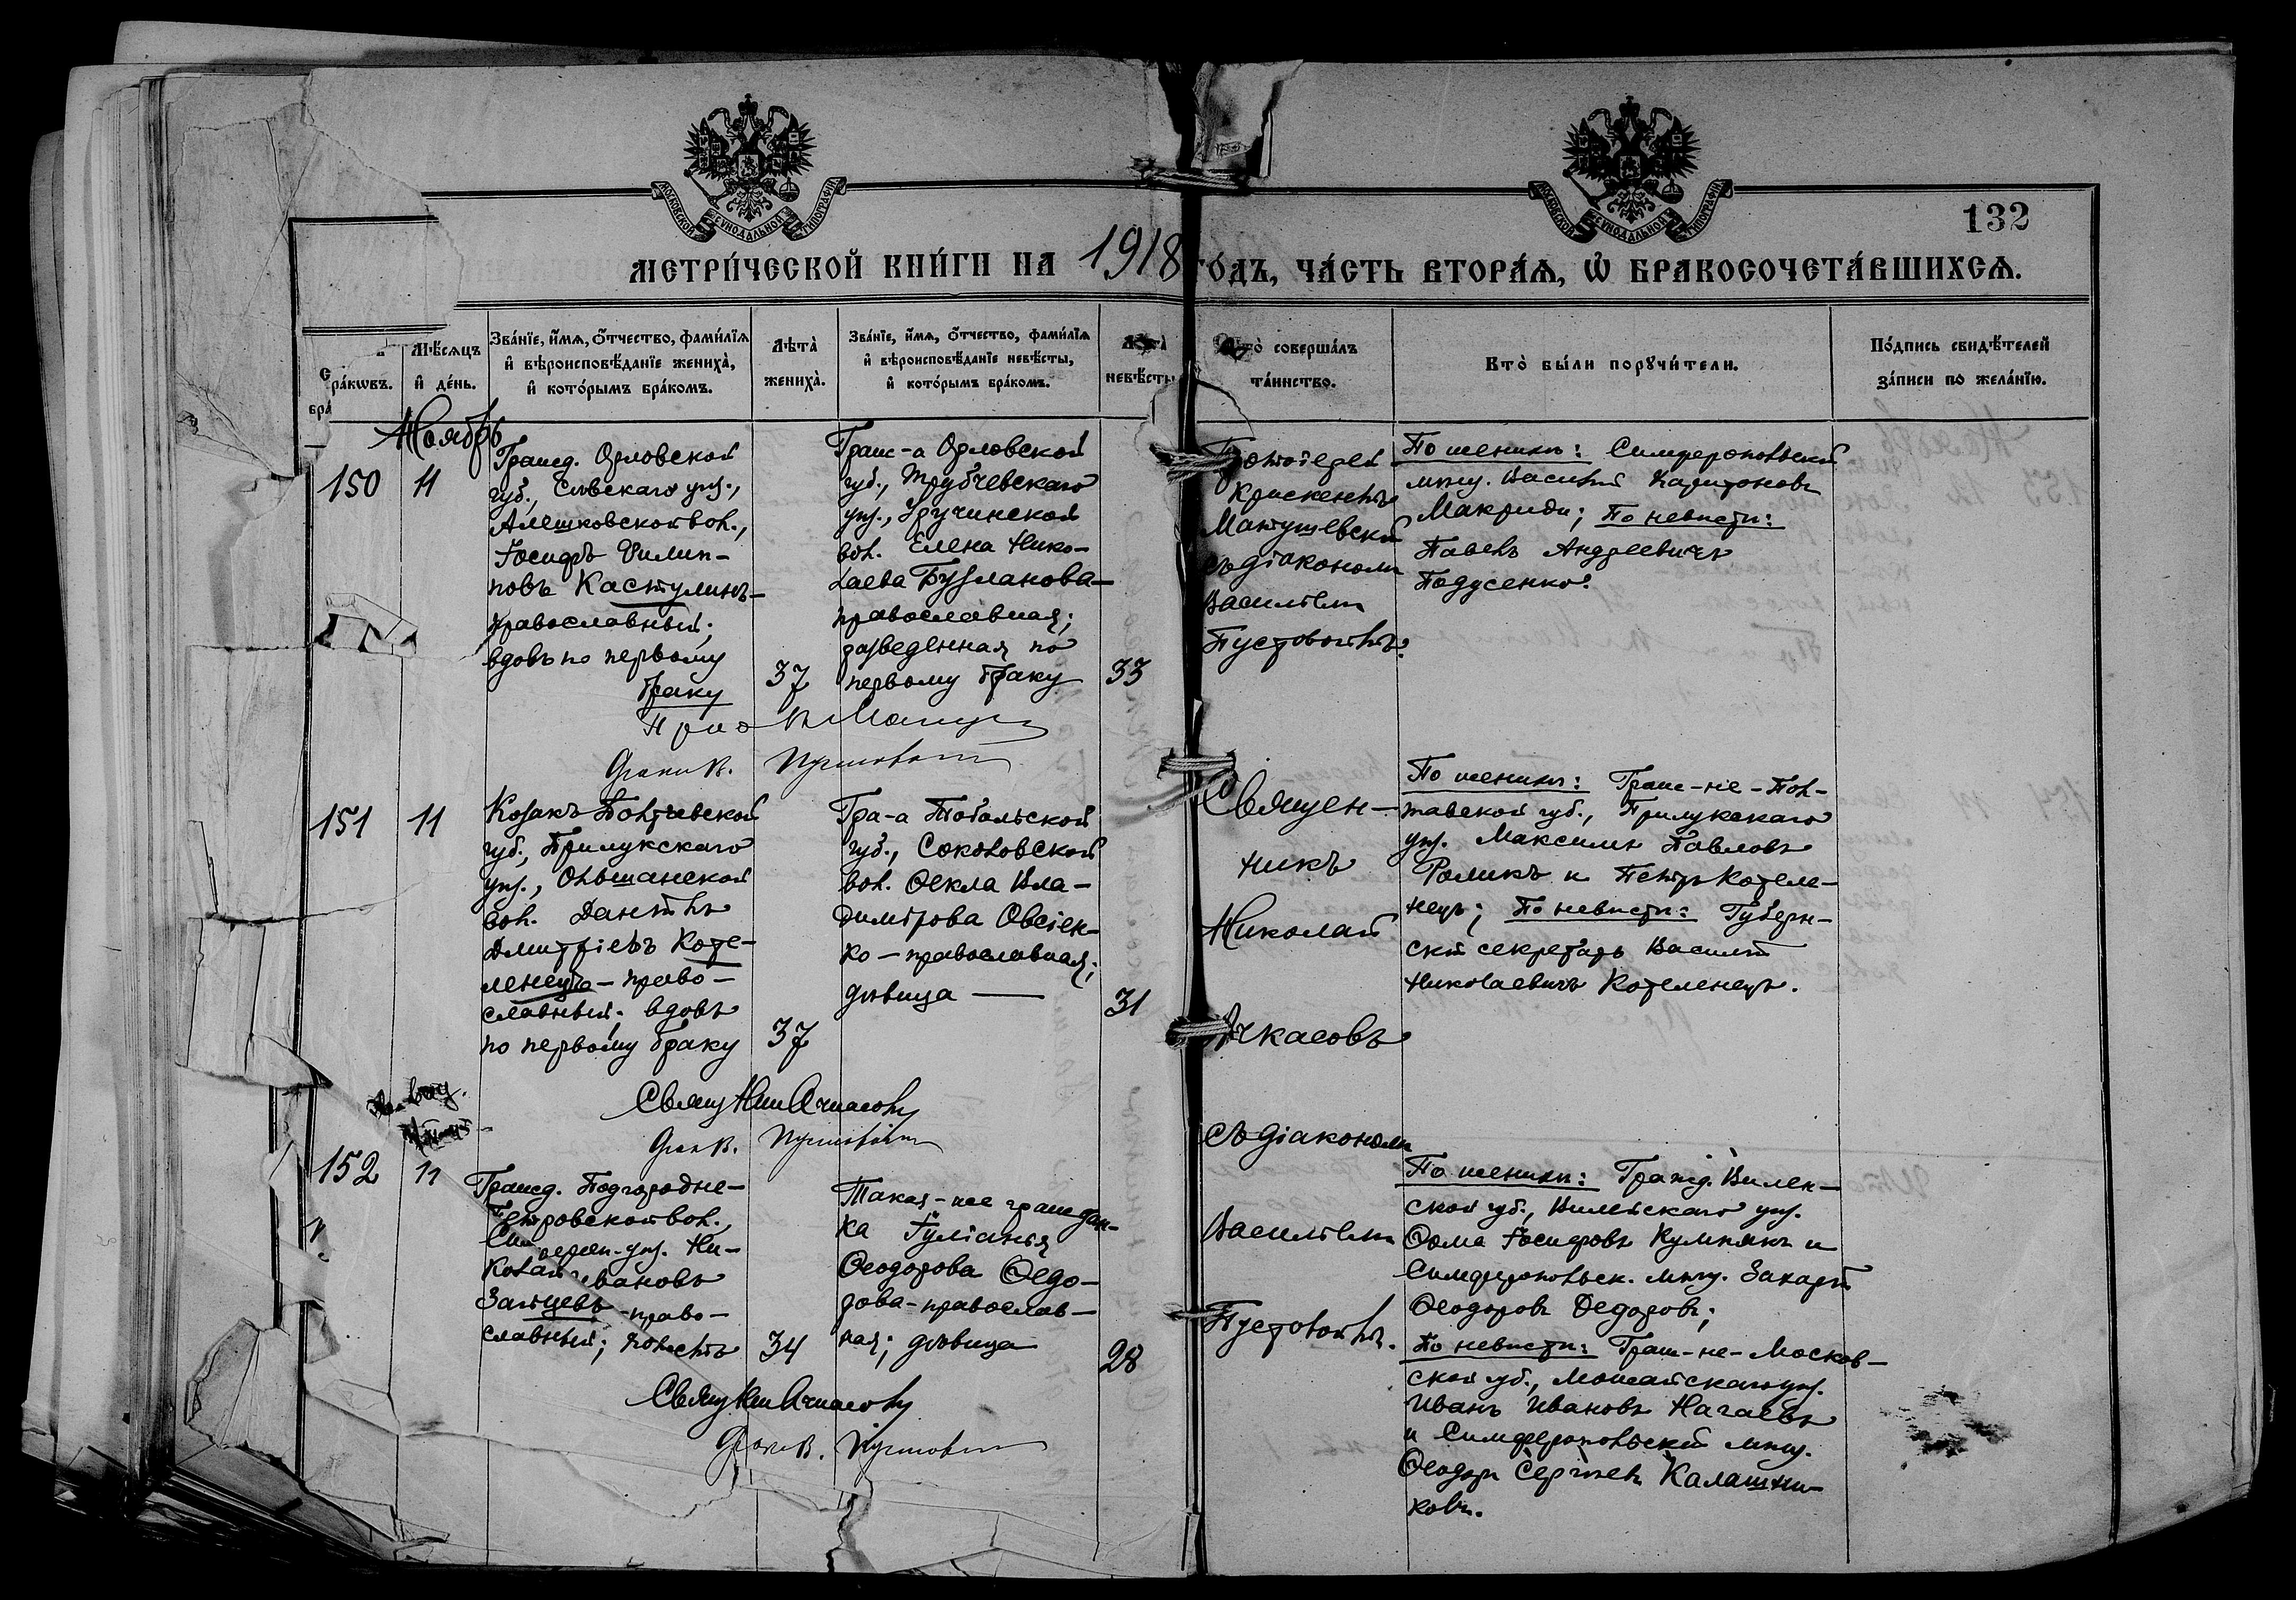 МОСКОВСКОЙ СѴНОДАЛЬНОЙ ТИПОГРАФІИ
МОСКОВСКОЙ СѴНОДАЛЬНОЙ ТИПОГРАФІИ
132
МЕТРИ́ЧЕСКОЙ КНИ́ГИ НА 1918 ГО́ДЪ, ЧА́СТЬ ВТОРА́Я, Ѡ БРАКОСОЧЕТА́ВШИХСЯ.
бра́кѡвъ.
Мѣ́сяцъ
и́ де́нь.
Зва́нїе, и́мя, о́тчество, фами́лїя
и́ вѣроисповѣ́данїе жениха̀,
и́ кото́рымъ бра́комъ.
Лѣта̀
жениха̀.
Зва́нїе, и́мя, о́тчество, фами́лїя
и́ вѣроисповѣ́данїе невѣ́сты,
и́ кото́рымъ бра́комъ.
Лѣта̀
невѣ́сты
Кто̀ соверша́лъ
та́инство.
Кто̀ бы́ли порꙋчи́тели.
По́дпись свидѣ́телей
за́писи по жела́нїю.
Ноябрь
150
11
Гражд. Орловской
губ., Сѣвскаго уѣз.,
Алешковской вол.,
Іосифъ Филип-
повъ Кастулинъ-
православный;
вдовъ по первому
браку
37
Граж-а Орловской
губ., Трубчевскаго
уѣз., Уручинской
вол. Елена Нико-
лаева Бузланова-
православная;
разведенная по
первому браку
33
Протоіерей
Крискентъ
Матушевскій
съ діакономъ
Василіемъ
Пустовойтъ.
По женихѣ: Симферопольскій
мѣщ. Василій Харитоновъ
Макриди; По невѣстѣ:
Павелъ Андреевичъ
Падусенко.
151
11
Козакъ Полтавской
губ., Прилукскаго
уѣз., Ольшанской
вол. Даніилъ
Дмитріевъ Коте-
ленецъ - право-
славный. вдовъ
по первому браку
37
Гра-а Тобольской
губ., Соколовской
вол. Ѳекла Вла-
димірова Овсіен-
ко - православная;
дѣвица
31
Священ-
никъ
Николай
Ачкасовъ
съ діакономъ
Василіемъ
Пустовойтъ.
По женихѣ: Граж-не - Пол-
тавской губ., Прилукскаго
уѣз. Максимъ Павловъ
Роликъ и Петръ Котеле-
нецъ; По невѣстѣ: Губерн-
скій секретарь Василій
Николаевичъ Котеленецъ.
Свящ Ник Ачкасовъ
152
11
Гражд. Подгородне-
Петровской вол.,
Симфероп. уѣз. Ни-
колай Ивановъ
Зайцевъ - право-
славный; холостъ
34
Такая-же граждан-
ка Іуліанія
Ѳеодорова Ѳедо-
рова - православ-
ная; дѣвица
28
По женихѣ: Гражд. Вилен-
ской губ., Вилейскаго уѣз.
Ѳома Іосифовъ Кумпякъ и
Симферопольск. мѣщ. Захарій
Ѳеодоровъ Ѳедоровъ;
По невѣстѣ: Граж-не - Москов-
ской губ., Можайскаго уѣз.
Иванъ Ивановъ Нагаевъ
и Симферопольскій мѣщ.
Ѳеодоръ Сергѣевъ Калашни-
ковъ.
Свящ Ник Ачкасовъ